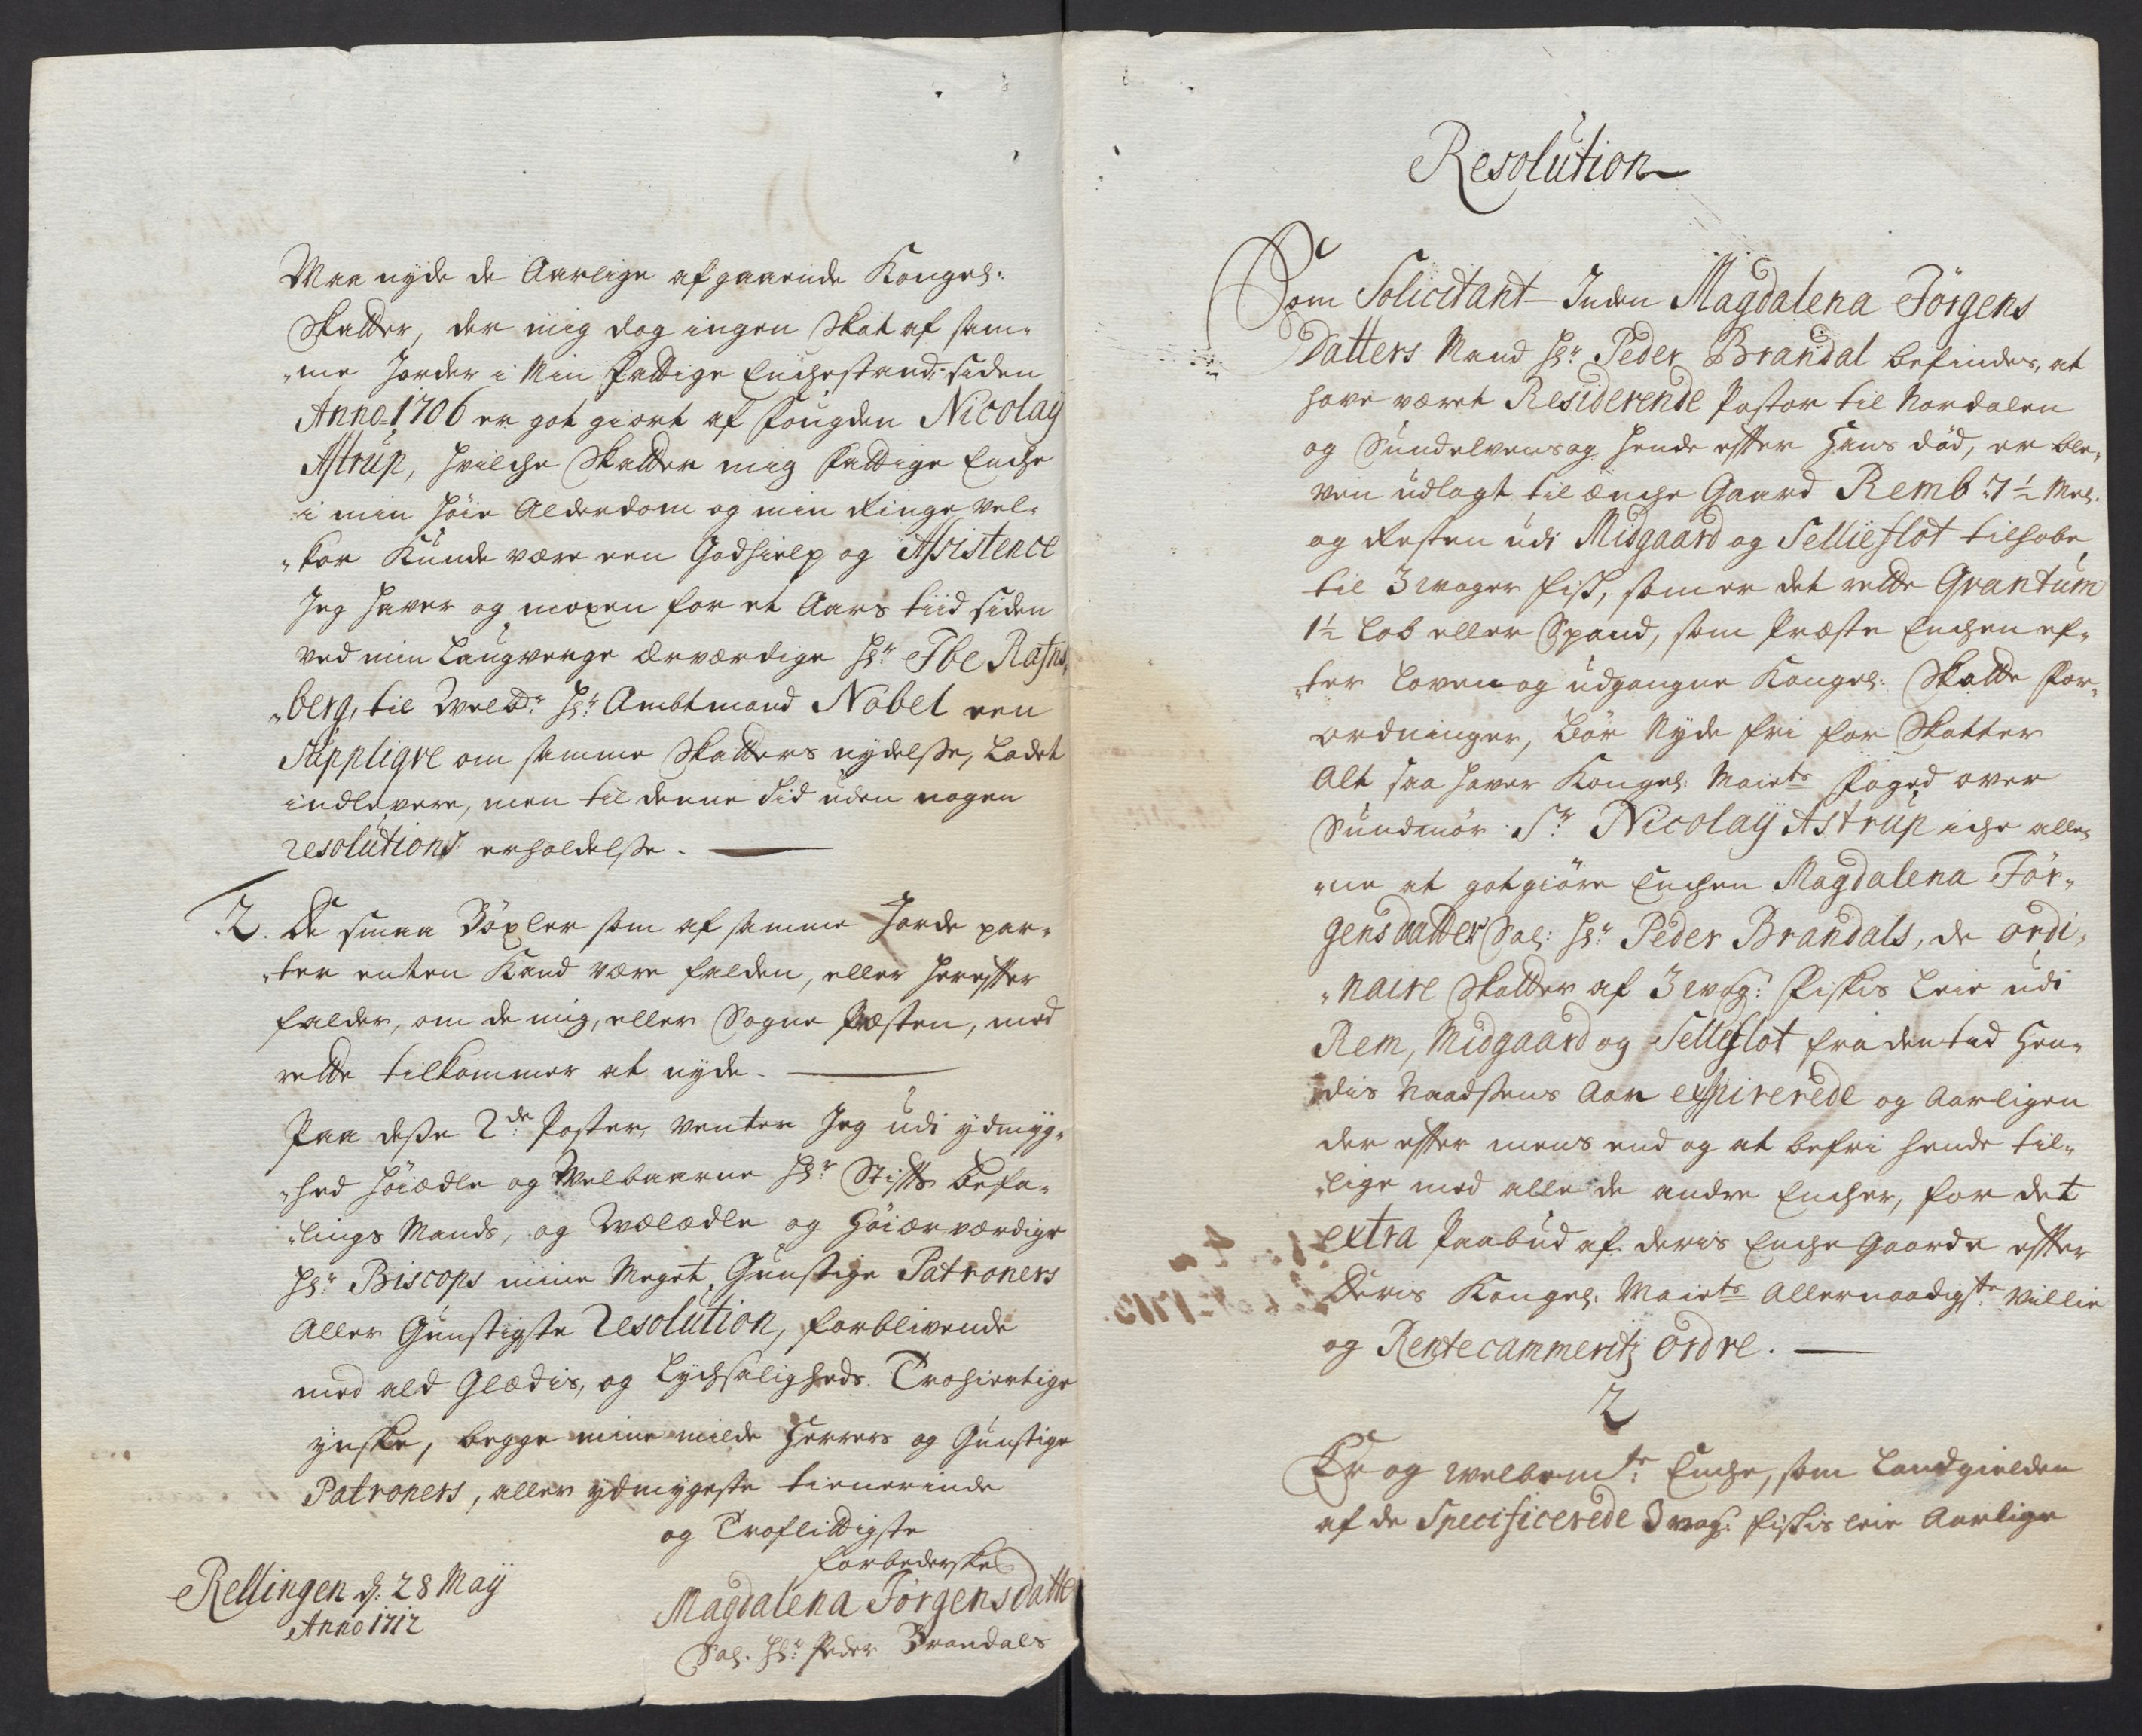 Maa nyde de Aarlige afgaaende Kongel:
Skatter, der mig dog ingen Skat af sam-
"me Jorder i Min fattige Enchestand, siden
Anno 1706 er got giort af fougden Nicolaÿ
Astrup, hvilche Skatter mig fattige Enche
i min høie Alderdom og min ringe vel-
"kor Kunde være een Godhielp og Assistence
Jeg haver og moxen for et Aars tiid siden
ved min Laugverge Ærværdige Hr: Ibe Rafns-
"berg, til Welb: Hr: Ambtmand Nobel een
Suppliqve om samme Skatters nydelsse, Ladet
indlevere, men til denne Tid uden nogen
resolutions erholdelsse.
2. De smaa Böxler som af samme Jorde par-
"ter enten Kand være falden, eller herefter
falder, om de mig, eller Sogne Præsten, med
rette tilkommer at nyde.
Paa desse 2de: Poster, venter Jeg udi ydmyg-
"hed höiædle og Welbaarne Hr: Stifts befa-
"lings Mands, og Wælædle og Höiærværdige
Hr: Biscops mine Meget Gunstige Patroners
Aller Gunstigste Resolution, forblivende
med ald Glædis, og Lychsaligheds Trohiertige
ynske, begge mine milde Herrers og Gunstige
Patroners, aller ydmygeste tienerinde
og Troflittigste
forbederske
Rellingen d: 28 Maÿ
Anno 1712
Magdalena Jörgensdatte
Sal. Hr: Peder Brandals
Resolution
Som Solicitant Inden Magdalena Jörgens
Datters Mand Hr: Peder Brandal befindes, at
have været Residerende Pastor til Nordalen
og Sundelvens og hende efter Hans död, er ble-
ven udlagt til enche Gaard Remb 7 1/2 Mel.
og resten udi Midgaard og Sellieflot tilhobe
til 3 woger fisk, som er det rette Qvantum
1 1/2 Lob eller Spand, som Præste Enchen ef-
"ter Loven og udgangne Kongel: Skatte for-
ordninger, bör Nyde fri for Skatter
Alt saa haver Kongel: Maiets Foged over
Sundmör Sr: Nicolaÿ Astrup iche alle-
"ne at gotgiöre Enchen Magdalena Jör-
gensdatter Sal: Hr: Peder Brandals, de ordi-
"naire Skatter af 3 wog: Fiskis Leie udi
Rem, Midgaard og Selleflot fra den tid Hen-
dis Naadsens Aar expirerede og Aarligen
der efter mens end og at befri hende til-
"lige med alle de andre Encher, for det
extra Paabud af deris Enche Gaarde efter
Deris Kongel: Maiets Allernaadigste: Villie
og Rentecammeritz ordre.
2
Er og welbemte: Enche, som Landgielden
af de Specificerede 3 wog: fiskis leie Aarlige